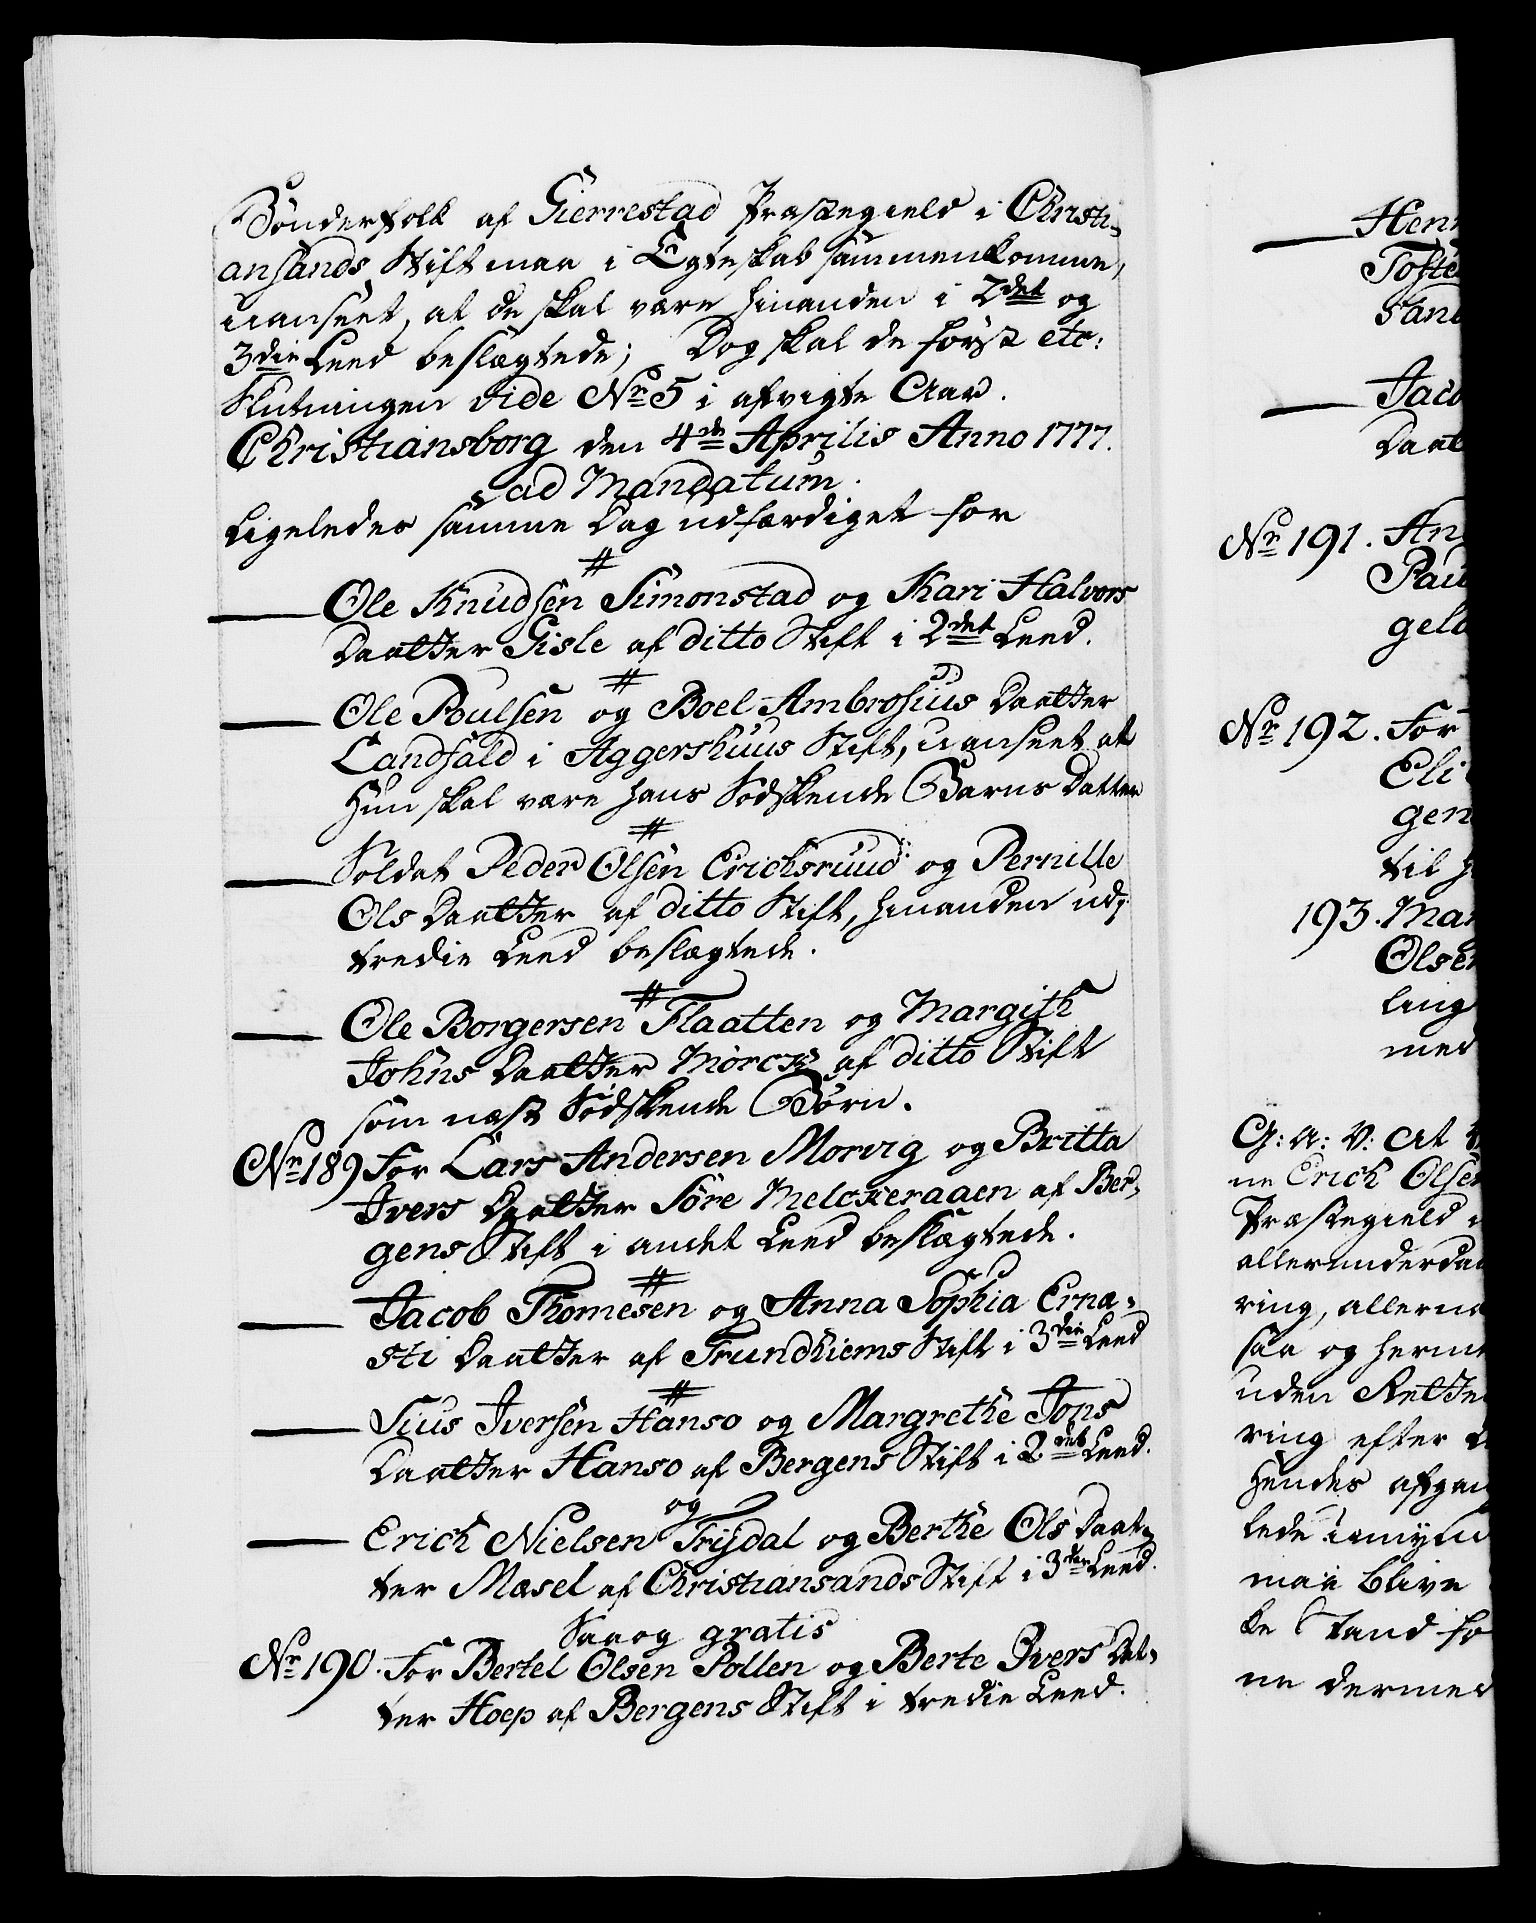 Bønderfolk af Gierrestad Præstegield i Christi-
ansands Stift maa i Egteskab sammenkomme,
uanseet, at de skal være hinanden i 2det og
3die Leed beslægtede; Dog skal de først etc:
Slutningen vide No 5 i afvigte Aar.
Christiansborg den 4de Aprilis Anno 1777.
ad Mandatum.
Ligeledes samme Dag udfærdiget for
#
Ole Knudsen Simonstad og Kari Halvors
Daatter Gisle af ditto Stift i 2det Leed.
#
Ole Poulsen og Boel Ambrosius Daatter
Landfald i Aggershuus Stift, uanseet at
hun skal være hans Sødskende Barns Datter
#
Soldat Peder Olsen Ericksruud og Pernille
Ols Daatter af ditto Stift, hinanden udj
tredie Leed beslægtede.
#
Ole Borgersen Flaatten og Margith
Johns Daatter Mørck af ditto Stift
som næst Sødskende Børn.
No 189 For Lars Andersen Morvig og Britta
Ivers Daatter Søre Melckeraaen af Ber-
gens Stift i andet Leed beslægtede.
#
Jacob Thomesen og Anna Sophia Erna-
sti Daatter af Trundhiems Stift i 3die Leed
#
Sius Iversen Hanso og Margrethe Jons
Daatter Hanso af Bergens Stift i 2det Leed.
og
Erich Nielsen Trijdal og Berthe Ols Daat-
ter Mæsel af Christiansands Stift i 3die Leed.
Saa og gratis
No 190. For Bertel Olsen Pollen og Berte Ivers Dat-
ter Hoep af Bergens Stift i tredie Leed.
Jaco
Daat
No 191. An
Pau
geld
No 192. For
Eli
gen
til h
193. Mar
Olsen
ling
med
G: A: V: At
ne Erich Olsen
Præstegield i
allerunderdan
ring, allerna
saa og herme
uden Rettens
ring efter
hendes afgan
lede
maa blive
ke Stand fo
ne dermed